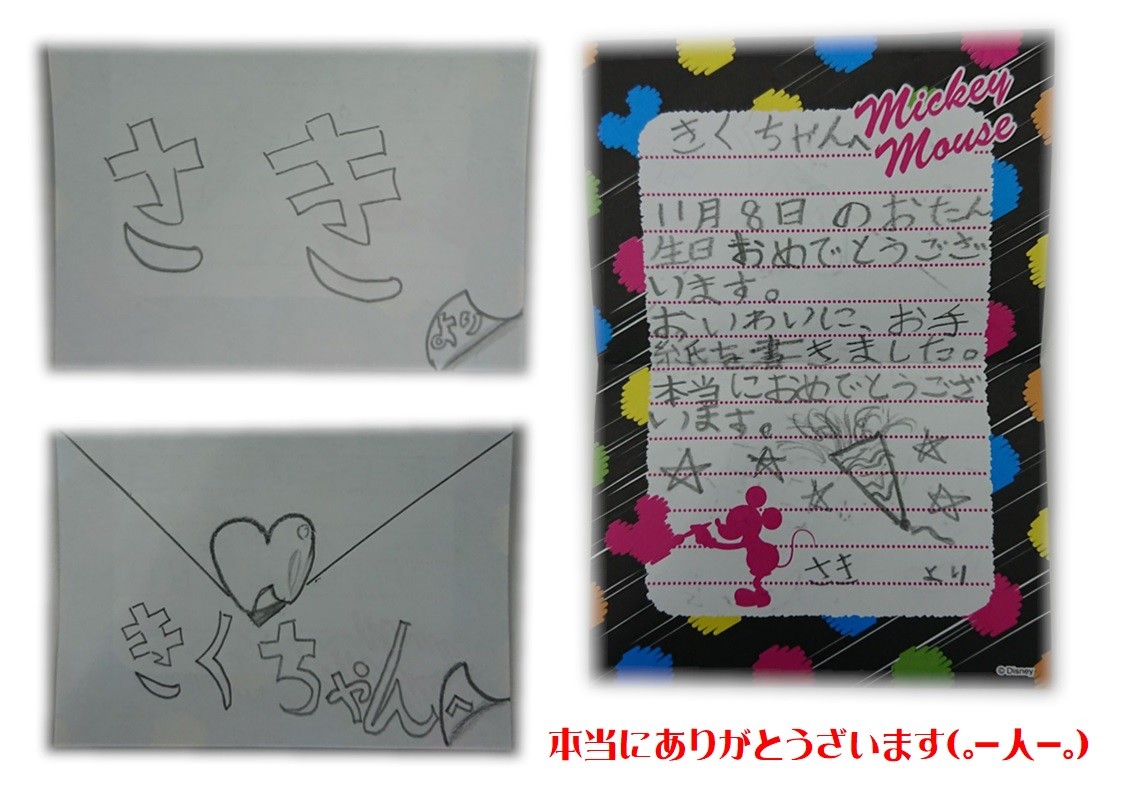 さき
より
きくちゃん
へ
Mickey
Mouse
きくちゃんへ
11月8日のおたん
生日おめでとうござ
います。
おいわいに、お手
紙を書きました。
本当におめでとうござ
います。
さきより
© Disney
本当にありがとうざいます(｡ー人ー｡)